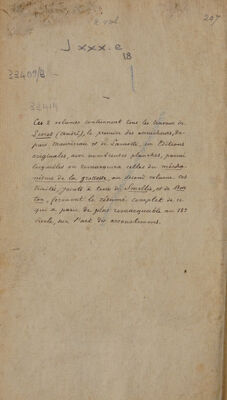 2 vol
207
J xxx. e
18
33409/B
33414
Ces 2 volumes contiennent tous les travaux de
Levret (André), le premier des accoucheurs, de-
puis Mauriceau et de Lamotte, en Editions
originales, avec nombreuses planches, parmi
lesquelles on remarquera celles du mécha-
nisme de la grossesse, au second volume. Ces
traités, joints à ceux de Smellie, et de Bur-
ton, forment le résumé complet de ce
qui a paru de plus remarquable au 18e
siècle, sur l'art des accouchemens.